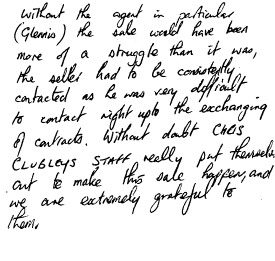 Without the agent in particular
(Glennis) the sale would have been
more of a struggle than it was,
the seller had to be consistently
contacted as he was very difficult
to contact right upto the exchanging
of contracts. Without doubt CHRIS
CLUBLEYS STAFF really put themselves
out to make this sale happen, and
we are extremely grateful to
them.